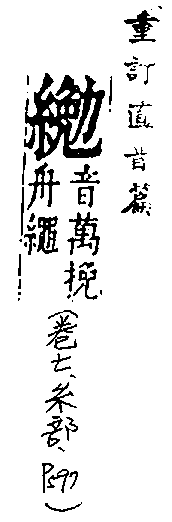 重訂直音篇
𦃇
音萬挽
舟繩
(卷七、糸部、P597)